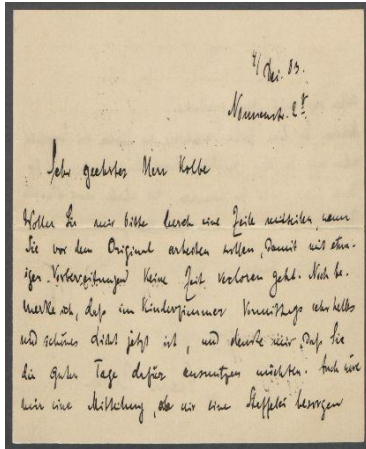 4/ Dei. 03.
Nonnenstr. 8
Sehr geehrter Herr Kolbe
Wollen Sie mir bitte durch eine Zeile mitteilen, wann
Sie vor dem Original arbeiten wollen, damit mit etwa-
igen Vorbereitungen keine Zeit verloren geht. Noch be-
merke ich, daß im Kinderzimmer Vormittags sehr helles
und schönes Licht jetzt ist, und denke mir, daß Sie
die guten Tage dafür ausnutzen möchten. Auch wäre
mir eine Mitteilung, ob wir eine Staffelei besorgen